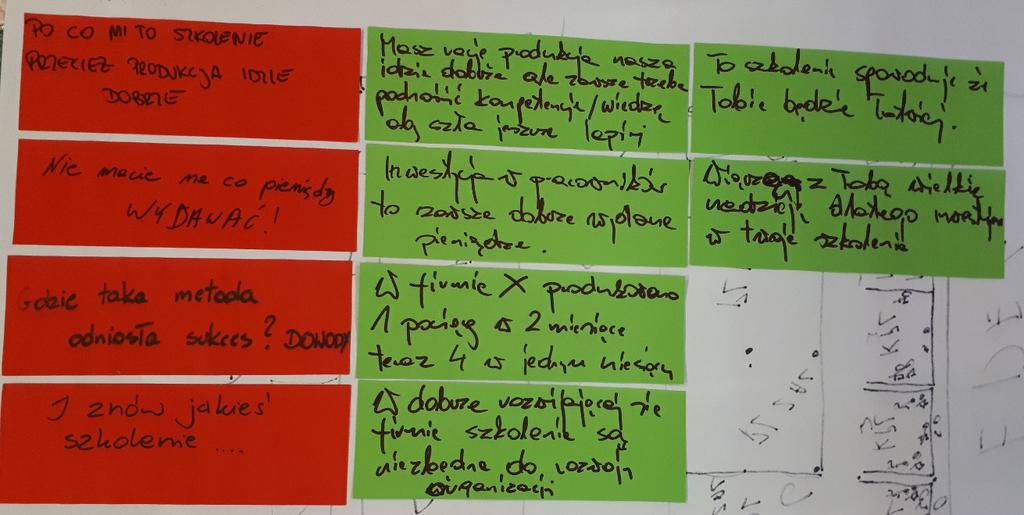 PO CO MI TO SZKOLENIE
PRZECIEŻ PRODUKCJA IDZIE
DOBRZE
Masz rację produkcja nasza
idzie dobrze ale zawsze trzeba
podnosić kompetencje/wiedzę
aby szła jeszcze lepiej
To szkolenie spowoduje że
Tobie będzie łatwiej.
Nie macie na co pieniędzy
WYDAWAĆ!
Inwestycja w pracowników
to zawsze dobrze wydane
pieniądze.
Wiążę z Tobą wielkie
nadzieje dlatego inwestuję
w twoje szkolenie
Gdzie taka metoda
odniosła sukces? DOWODY
W firmie X produkowano
1 pociąg w 2 miesiące
teraz 4 w jednym miesiącu
I znów jakieś
szkolenie ....
W dobrze rozwijającej się
firmie szkolenia są
niezbędne do rozwoju
organizacji